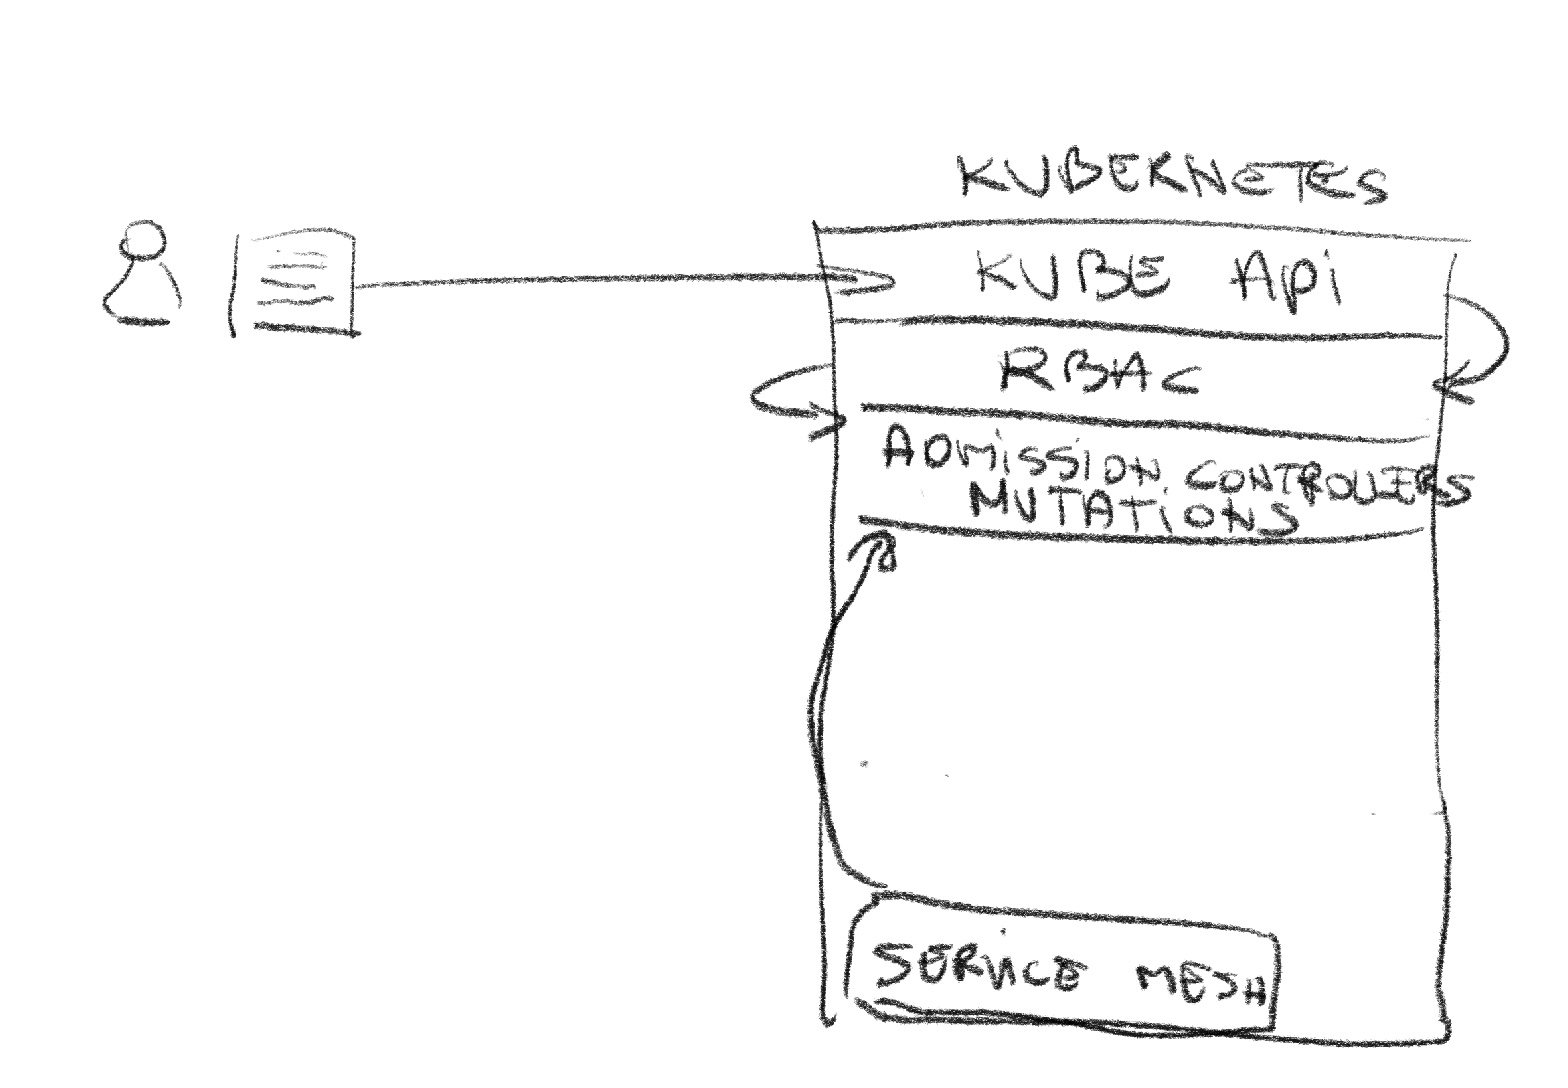 KUBERNETES
KUBE Api
RBAC
ADMISSION CONTROLLERS
MUTATIONS
SERVICE MESH